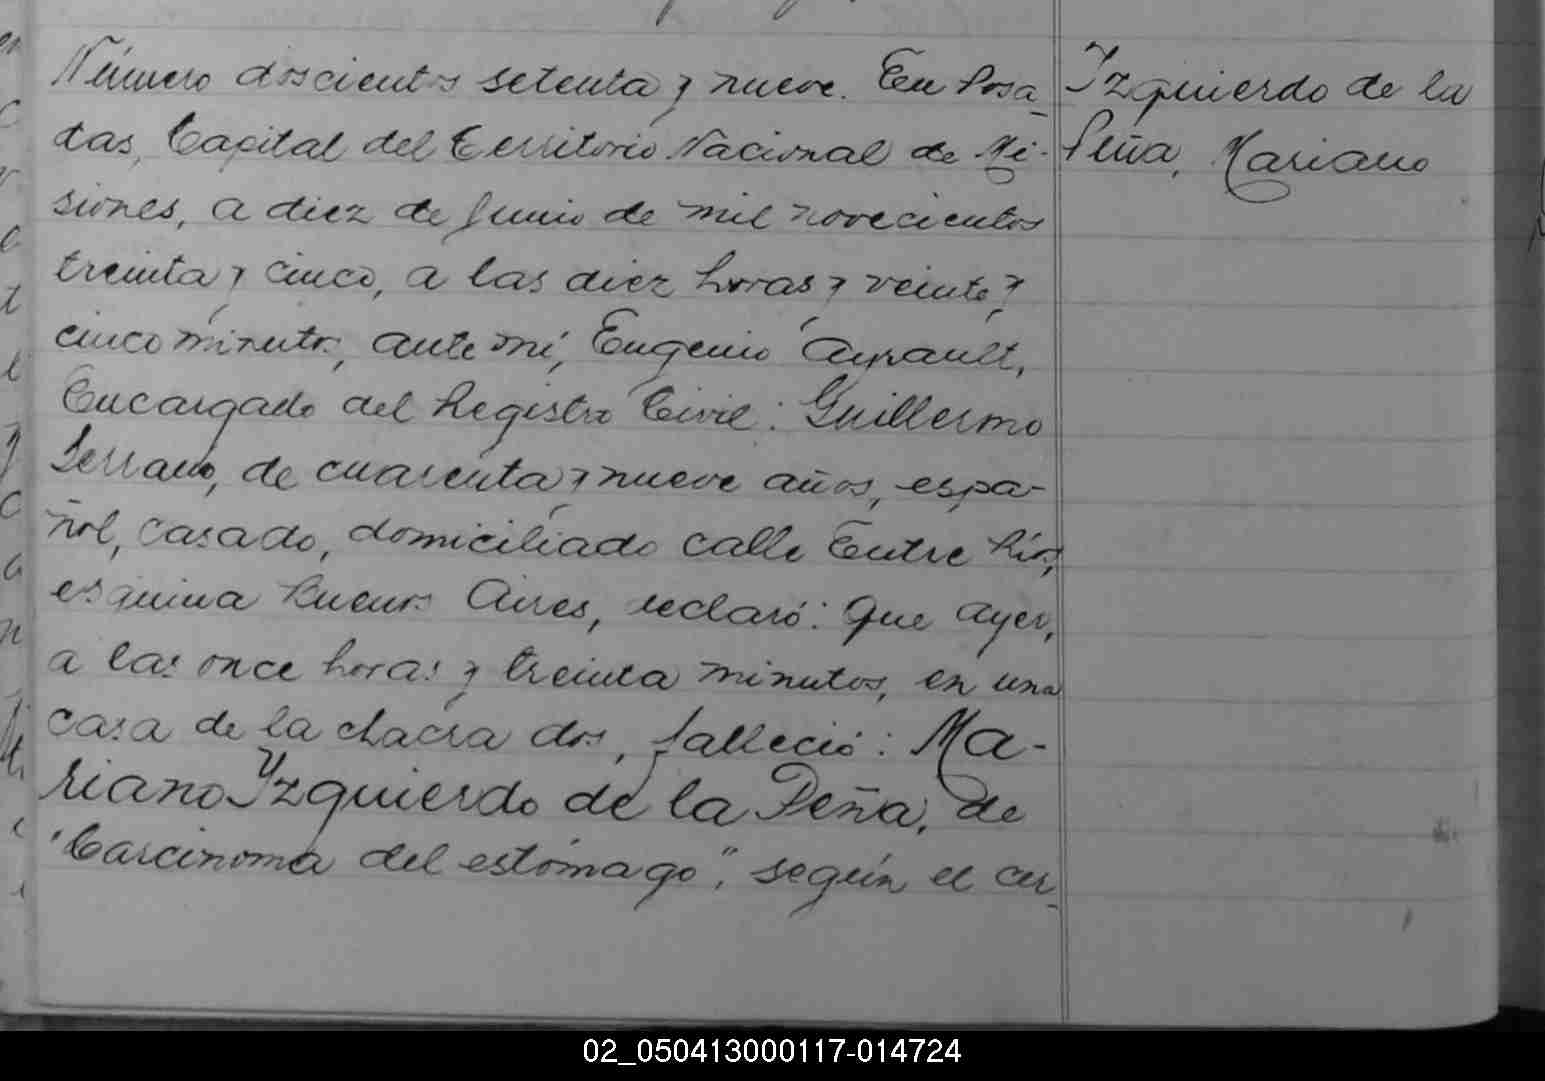 Número doscientos setenta y nueve. En Posa-
das, Capital del Territorio Nacional de Mi-
siones, a diez de Junio de mil novecientos
treinta y cinco, a las diez horas y veinte y
cinco minutos, ante mí, Eugenio Ayrault,
Encargado del Registro Civil: Guillermo
Serrano, de cuarenta y nueve años, espa-
ñol, casado, domiciliado calle Entre Ríos,
esquina Buenos Aires, declaró: Que ayer,
a las once horas y treinta minutos, en una
casa de la chacra dos, falleció: Ma-
riano Yzquierdo de la Peña, de
"Carcinoma del estómago", según el cer-
Yzquierdo de la
Peña, Mariano
02_050413000117-014724